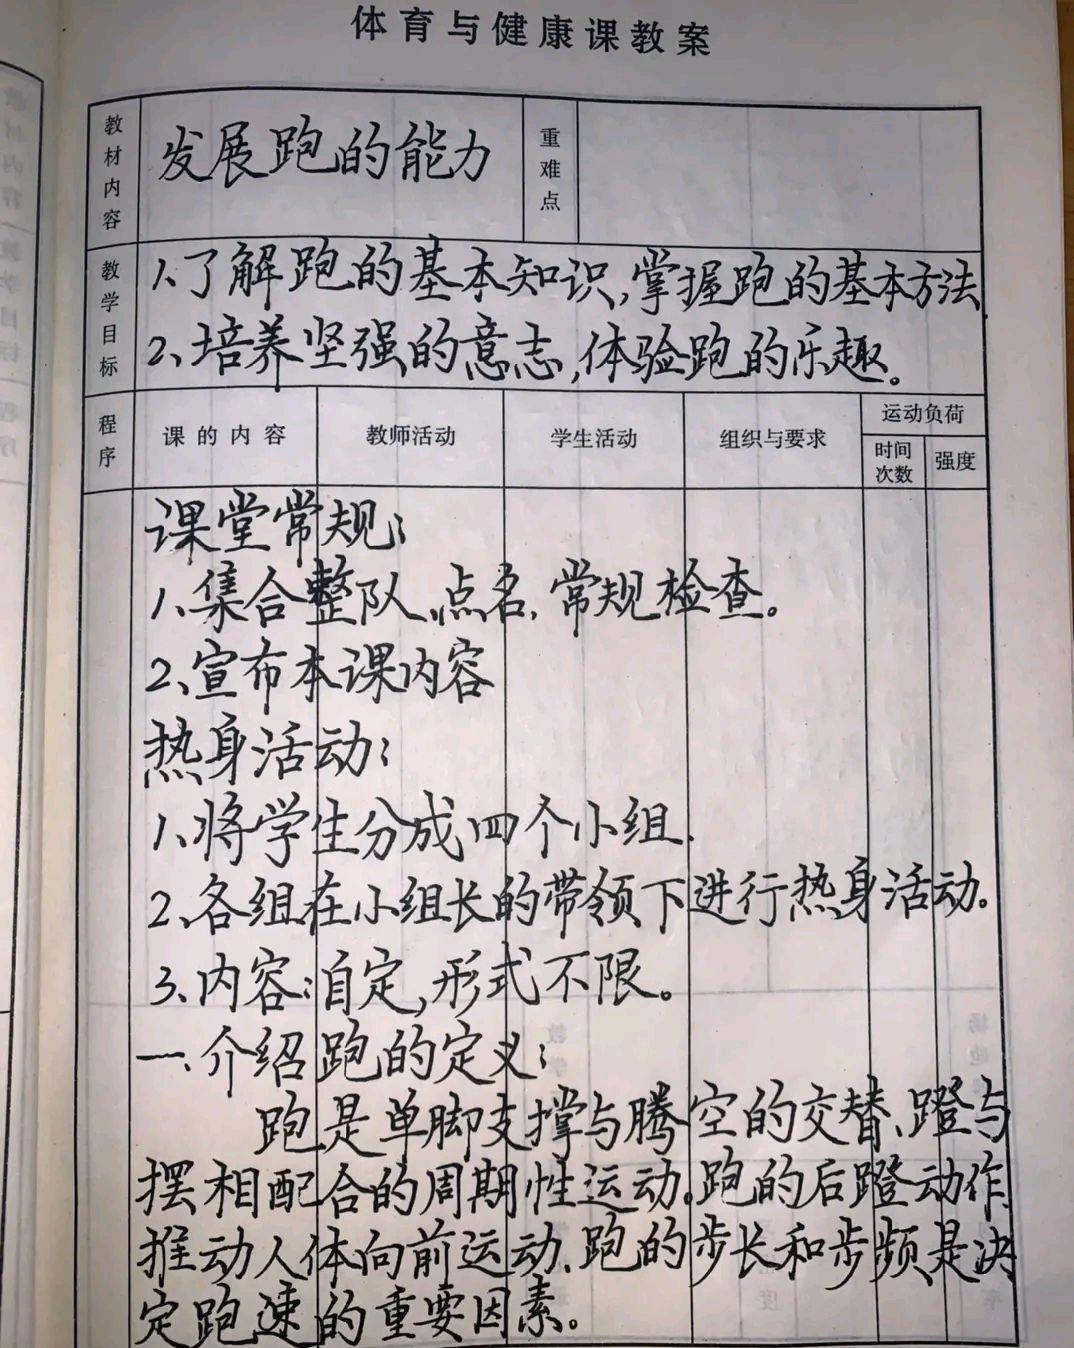 体育与健康课教案
教材内容
发展跑的能力
重难点
教学目标
1、了解跑的基本知识,掌握跑的基本方法
2、培养坚强的意志,体验跑的乐趣。
程序
课的内容
教师活动
学生活动
组织与要求
运动负荷
时间次数
强度
课堂常规:
1、集合整队、点名、常规检查。
2、宣布本课内容
热身活动:
1、将学生分成四个小组.
2、各组在小组长的带领下进行热身活动。
3、内容:自定,形式不限。
一、介绍跑的定义:
跑是单脚支撑与腾空的交替、蹬与
摆相配合的周期性运动。跑的后蹬动作
推动人体向前运动、跑的步长和步频是决
定跑速的重要因素。